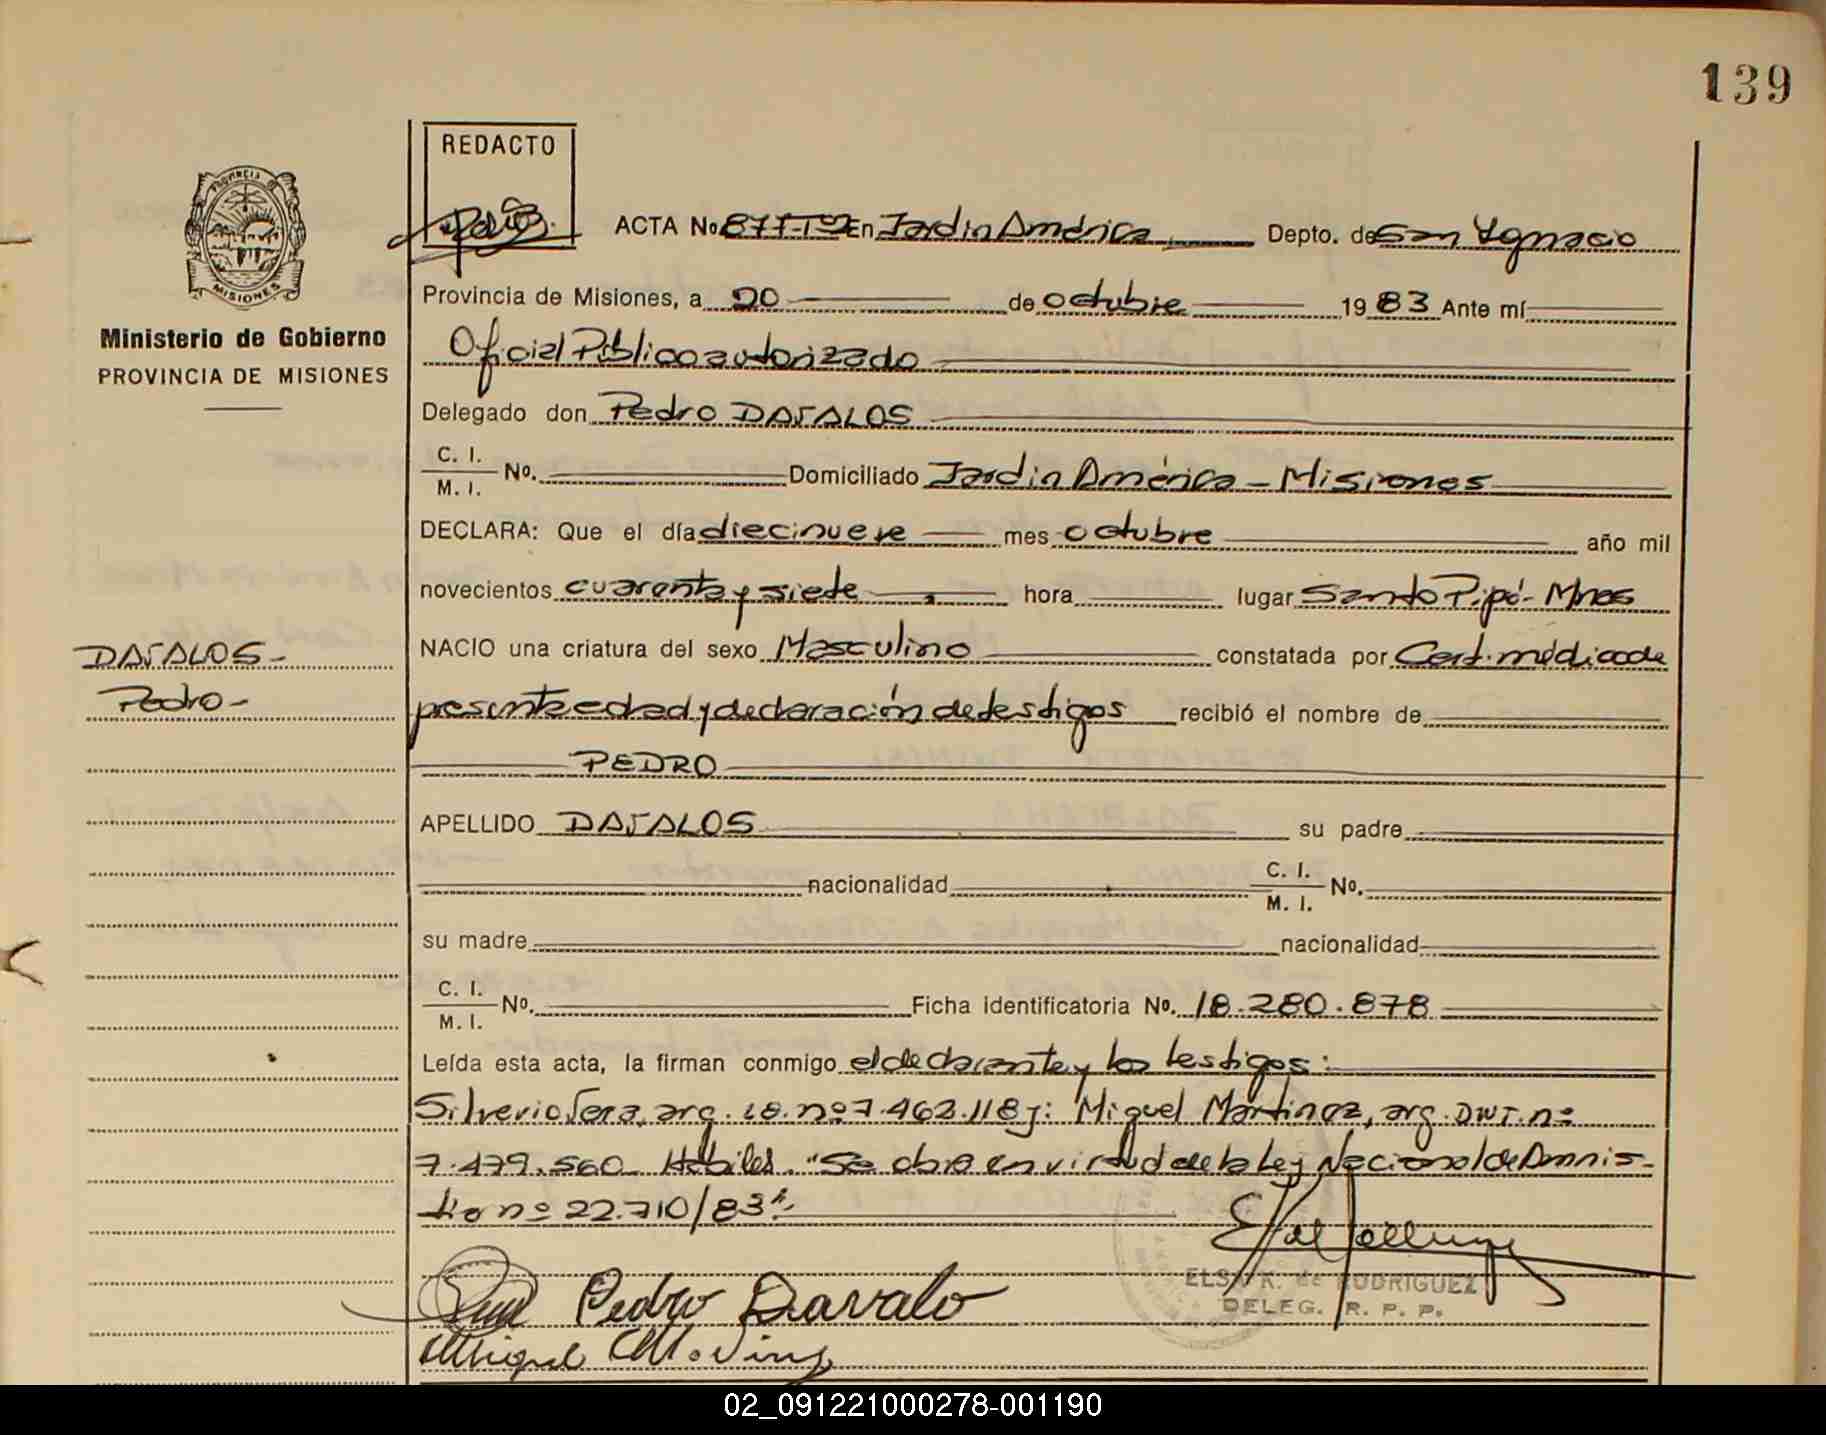 139
REDACTO
PROVINCIA DE
MISIONES
Ministerio de Gobierno
PROVINCIA DE MISIONES
DAVALOS-
Pedro-
ACTA No 877-Tº En Jardin América Depto. de San Ygnacio
Provincia de Misiones, a 20 de octubre 1983 Ante mí
Oficial Público autorizado
Delegado don Pedro DAVALOS
C. I.
M. I. No. Domiciliado Jardin América - Misiones
DECLARA: Que el día diecinueve mes octubre año mil
novecientos cuarenta y siete hora lugar Santo Pipó - Mnes
NACIO una criatura del sexo Masculino constatada por Cert. médico de
presunta edad y declaración de testigos recibió el nombre de
PEDRO
APELLIDO DAVALOS su padre
nacionalidad C. I.
M. I. No.
su madre nacionalidad
C. I.
M. I. No. Ficha identificatoria No. 18.280.878
Leída esta acta, la firman conmigo el declarante y los testigos:
Silverio Vera, arg. nº 7.462.118 y: Miguel Martinez, arg. DNI. nº
7.479.560 Hábiles. "Se labró en virtud de la Ley Nacional de Amnis-
tia nº 22.710/83".
Pedro Davalo
Miguel
ELSA K. de RODRIGUEZ
DELEG. R. P. P.
02_091221000278-001190